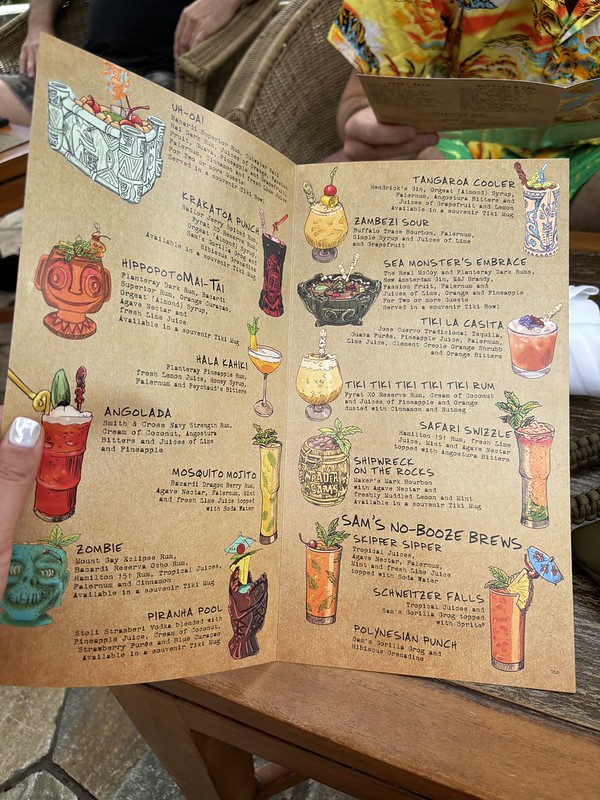 UH-OA!
Bacardi Superior Rum, Cruzan
Juices of Orange, Passion
Falernum, Cinnamon and fresh Lime Juice
For Two or more Guests
Served in a souvenir Tiki Bowl
KRAKATOA PUNCH
Sailor Jerry Spiced
XO Reserve Rum,
Orgeat (Almond) Syrup,
Sam's Gorilla Grog and
Hibiscus Grenadine
Available in a souvenir Tiki Mug
HIPPOPOTOMAI-TAI
Planteray Dark Rum, Bacardi
Superior Rum, Orange Curaçao,
Orgeat (Almond) Syrup,
Agave Nectar and
fresh Lime Juice
Available in a souvenir Tiki Mug
HALA KAHIKI
Planteray Pineapple Rum,
fresh Lemon Juice, Honey Syrup,
Falernum and Peychaud's Bitters
ANGOLADA
Smith & Cross Navy Strength Rum,
Cream of Coconut, Angostura
Bitters and Juices of Lime
and Pineapple
MOSQUITO MOJITO
Bacardi Dragon Berry Rum,
Agave Nectar, Falernum, Mint
and fresh Lime Juice topped
with Soda Water
ZOMBIE
Mount Gay Eclipse Rum,
Bacardi Reserva Ocho Rum,
Hamilton 151 Rum, Tropical Juices,
Falernum and Cinnamon
Available in a souvenir Tiki Mug
PIRANHA POOL
Stoli Strasberi Vodka blended with
Pineapple Juice, Cream of Coconut,
Strawberry Purée and Blue Curaçao
Available in a souvenir Tiki Mug
TANGAROA COOLER
Hendrick's Gin, Orgeat (Almond) Syrup,
Falernum, Angostura Bitters and
Juices of Grapefruit and Lemon
Available in a souvenir Tiki Mug
ZAMBEZI SOUR
Buffalo Trace Bourbon, Falernum,
Simple Syrup and Juices of Lime
and Grapefruit
SEA MONSTER'S EMBRACE
The Real McCoy and Planteray Dark Rums,
New Amsterdam Gin, E&J Brandy,
Passion Fruit, Falernum and
Juices of Lime, Orange and Pineapple
For Two or more Guests
Served in a souvenir Tiki Bowl
TIKI LA CASITA
Jose Cuervo Tradicional Tequila,
Guava Purée, Pineapple Juice, Falernum,
Lime Juice, Clement Creole Orange Shrubb
and Orange Bitters
TIKI TIKI TIKI TIKI TIKI RUM
Pyrat XO Reserve Rum, Cream of Coconut
and Juices of Pineapple and Orange
dusted with Cinnamon and Nutmeg
SAFARI SWIZZLE
Hamilton 151 Rum, fresh Lime
Juice, Mint and Agave Nectar
topped with Angostura Bitters
SHIPWRECK
ON THE ROCKS
Maker's Mark Bourbon
with Agave Nectar and
freshly Muddled Lemon and Mint
Available in a souvenir Tiki Mug
TRADER
SAM'S
SAM'S NO-BOOZE BREWS
SKIPPER SIPPER
Tropical Juices,
Agave Nectar, Falernum,
Mint and fresh Lime Juice
topped with Soda Water
SCHWEITZER FALLS
Tropical Juices and
Sam's Gorilla Grog topped
with Sprite®
POLYNESIAN PUNCH
Sam's Gorilla Grog and
Hibiscus Grenadine